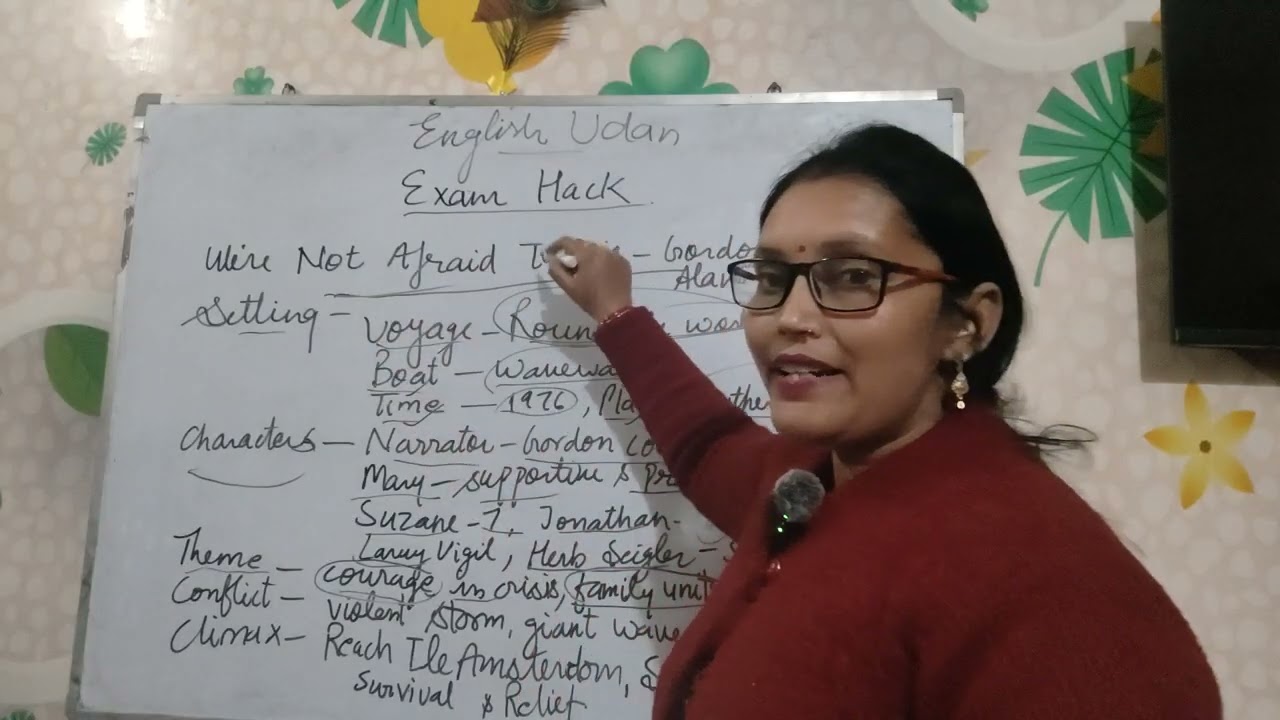 English Udan
Exam Hack
We're Not Afraid T - Gordo
Alan
Setting - Voyage - Roun wo
Boat - Wavewa
Time - 1976, Pla the
Characters - Narrator - Gordon Co
Mary - supportive & Pr
Suzane - 7, Jonathan -
Larry Vigil, Herb Seigler - S
Theme - courage in crisis, family unit
Conflict - violent storm, giant wave
Climax - Reach Ile Amsterdom, S
Survival & Relief